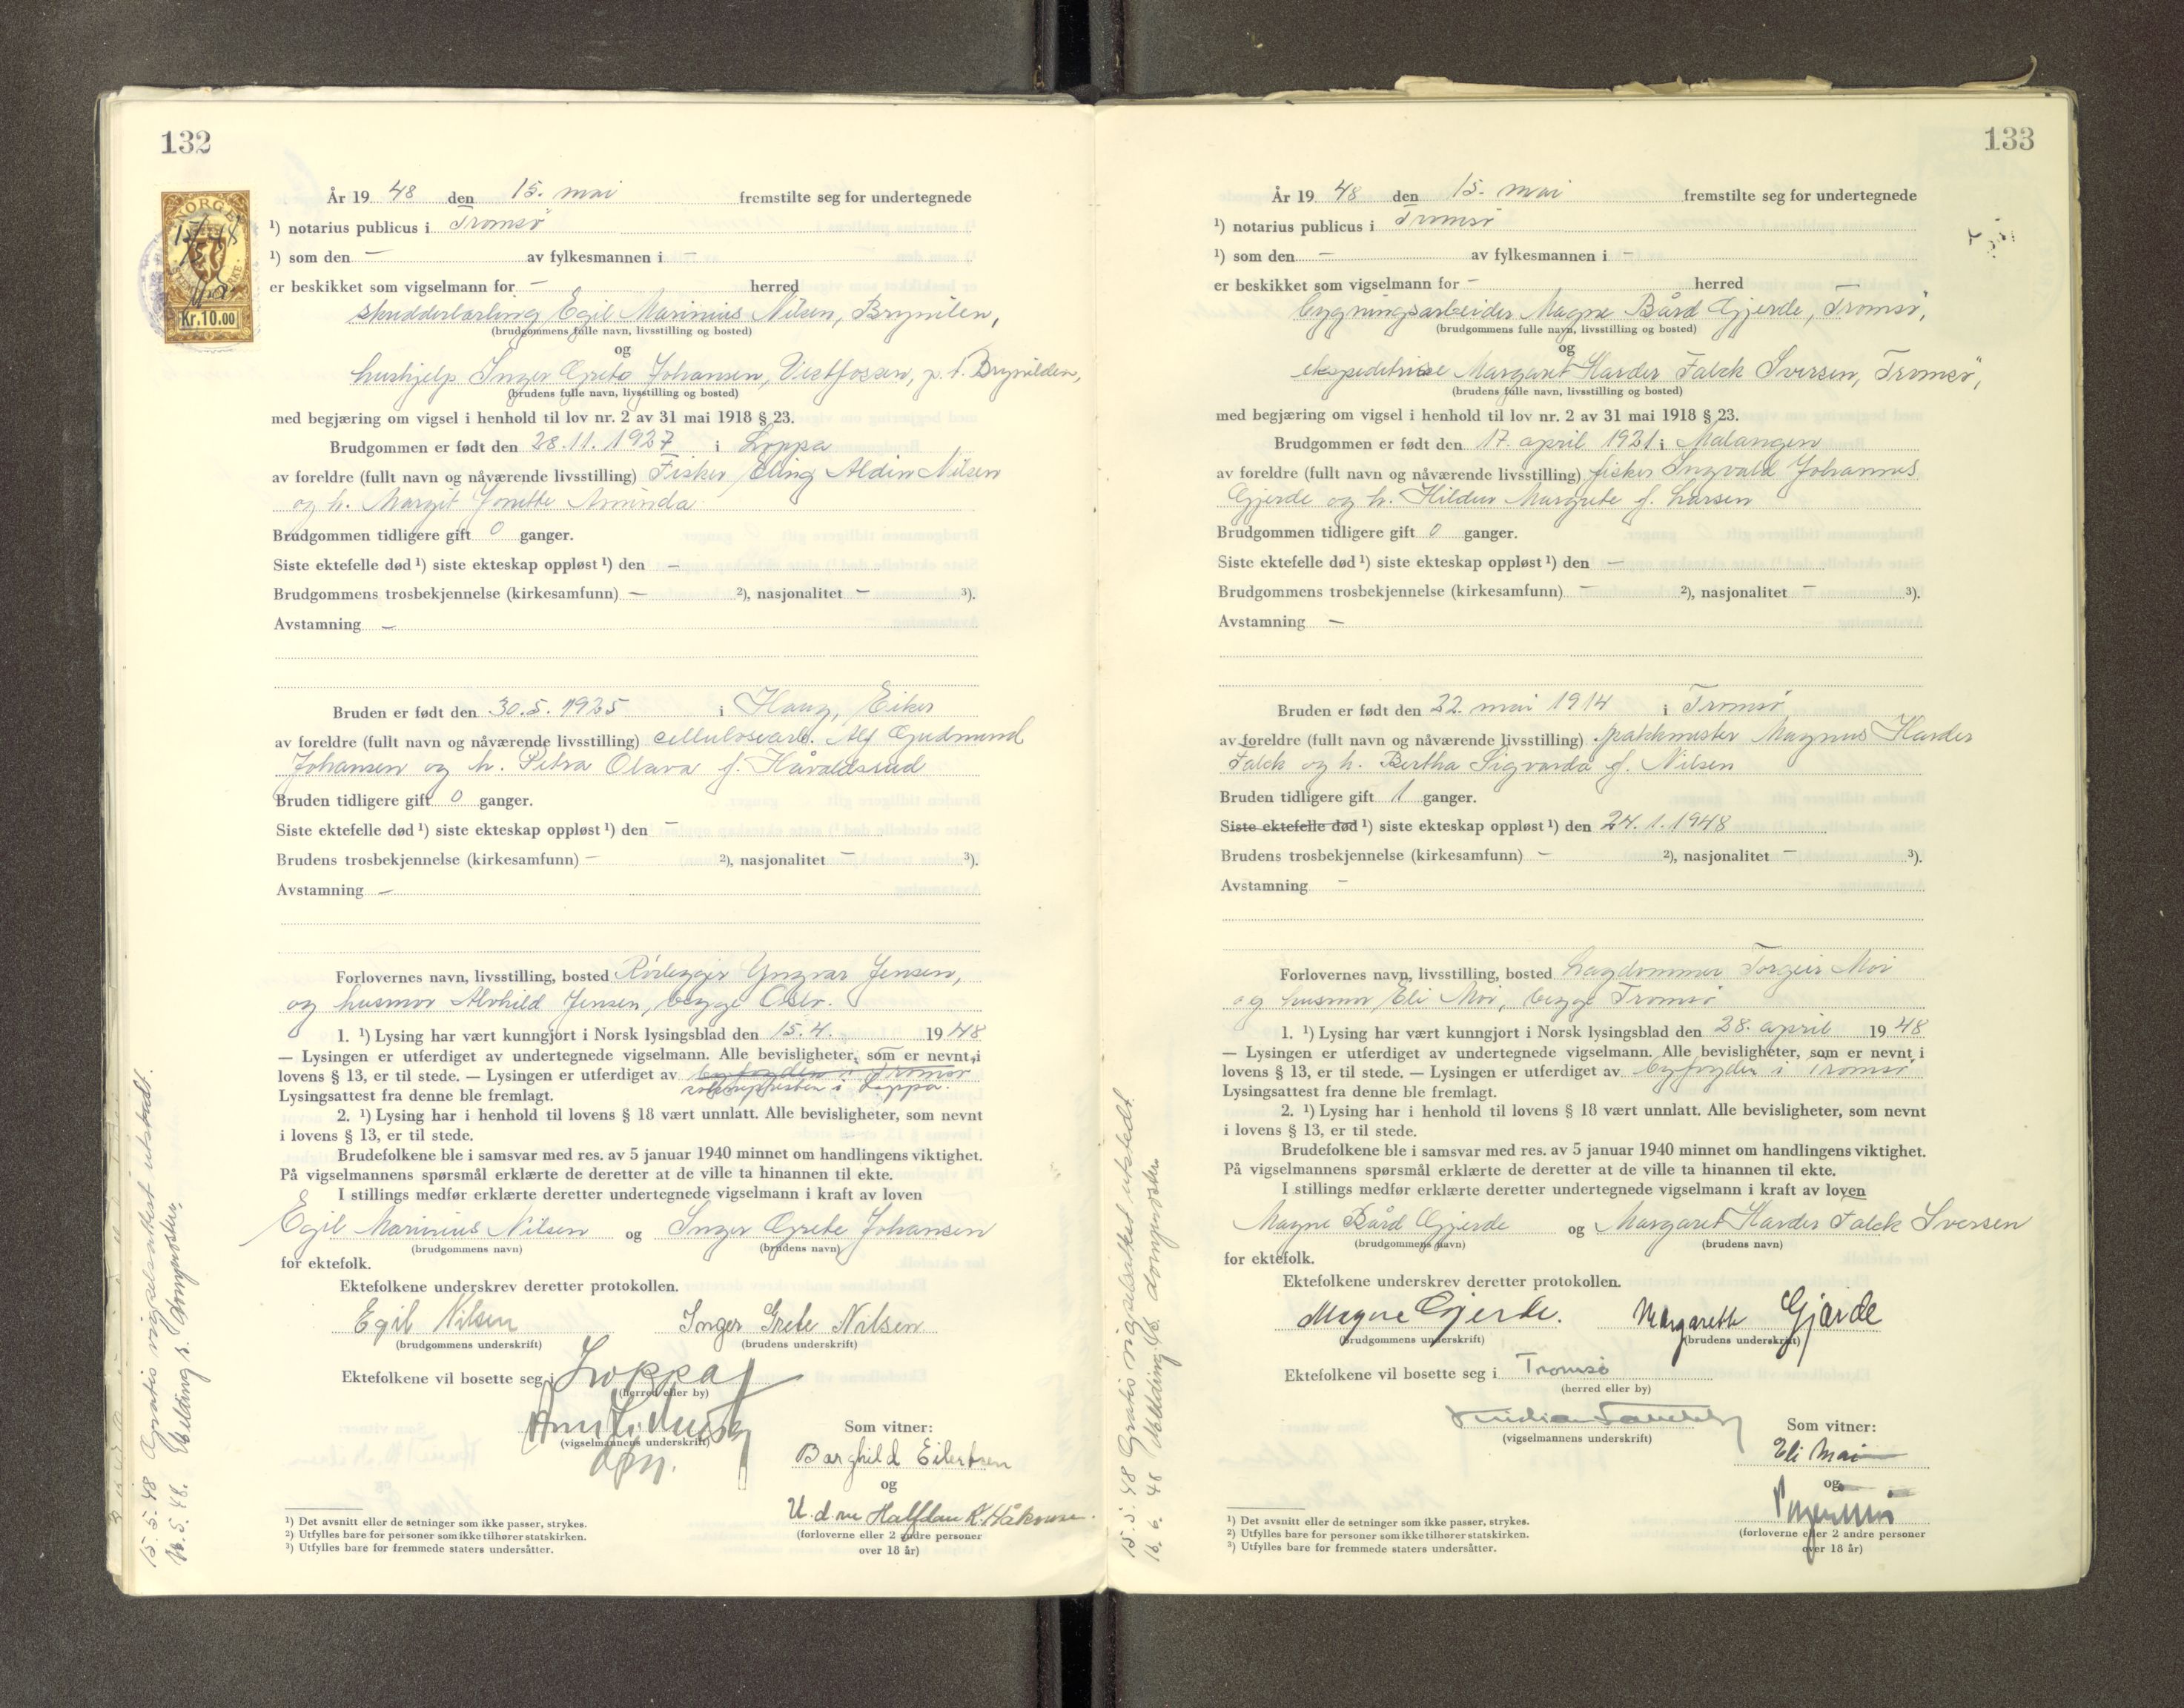 132
NORGE
STEMPELMERKE
Kr.10.00
År 19 48 den 15. mai fremstilte seg for undertegnede
¹) notarius publicus i Tromsø
¹) som den — av fylkesmannen i —
er beskikket som vigselmann for — herred
skredderlærling Egil Marinius Nilsen,
(brudgommens fulle navn, livsstilling og bosted)
og
hushjelp Inger Grete Johansen, Vestfossen, p. t.
(brudens fulle navn, livsstilling og bosted)
med begjæring om vigsel i henhold til lov nr. 2 av 31 mai 1918 § 23.
Brudgommen er født den 28.11.1927 i Loppa
av foreldre (fullt navn og nåværende livsstilling) Fisker Aldin Nilsen
og h. Margit Aminda
Brudgommen tidligere gift 0 ganger.
Siste ektefelle død ¹) siste ekteskap oppløst ¹) den —
Brudgommens trosbekjennelse (kirkesamfunn) — ²), nasjonalitet — ³).
Avstamning —
Bruden er født den 30.5.1925 i Haug, Eiker
av foreldre (fullt navn og nåværende livsstilling) cellulosearb. Alf Gudmund
Johansen og h. Petra Olava f. Håvaldsrud
Bruden tidligere gift 0 ganger.
Siste ektefelle død ¹) siste ekteskap oppløst ¹) den —
Brudens trosbekjennelse (kirkesamfunn) — ²), nasjonalitet — ³).
Avstamning —
Forlovernes navn, livsstilling, bosted Rørlegger Yngvar Jensen,
og husmor Alvhild Jensen, begge Oslo.
1. ¹) Lysing har vært kunngjort i Norsk lysingsblad den 15.4. 19 48
— Lysingen er utferdiget av undertegnede vigselmann. Alle bevisligheter, som er nevnt i
lovens § 13, er til stede. — Lysingen er utferdiget av byfogden i Tromsø
soknepresten i Loppa.
Lysingsattest fra denne ble fremlagt.
2. ¹) Lysing har i henhold til lovens § 18 vært unnlatt. Alle bevisligheter, som nevnt
i lovens § 13, er til stede.
Brudefolkene ble i samsvar med res. av 5 januar 1940 minnet om handlingens viktighet.
På vigselmannens spørsmål erklærte de deretter at de ville ta hinannen til ekte.
I stillings medfør erklærte deretter undertegnede vigselmann i kraft av loven
Egil Marinius Nilsen og Inger Grete Johansen
(brudgommens navn) (brudens navn)
for ektefolk.
Ektefolkene underskrev deretter protokollen.
Egil Nilsen Inger Grete Nilsen
(brudgommens underskrift) (brudens underskrift)
Ektefolkene vil bosette seg i Loppa
(herred eller by)
(vigselmannens underskrift)
Som vitner:
Borghild Eilertsen
og
Halfdan K. Håkonsen.
(forloverne eller 2 andre personer
over 18 år)
¹) Det avsnitt eller de setninger som ikke passer, strykes.
²) Utfylles bare for personer som ikke tilhører statskirken.
³) Utfylles bare for fremmede staters undersåtter.
15.5.48 Gratis vigselsattest utstedt.
Melding s. domprosten.
133
År 19 48 den 15. mai fremstilte seg for undertegnede
¹) notarius publicus i Tromsø
¹) som den — av fylkesmannen i —
er beskikket som vigselmann for — herred
bygningsarbeider Magne Bård Gjerde, Tromsø,
(brudgommens fulle navn, livsstilling og bosted)
og
ekspeditrise Margaret Harder Falck Iversen, Tromsø,
(brudens fulle navn, livsstilling og bosted)
med begjæring om vigsel i henhold til lov nr. 2 av 31 mai 1918 § 23.
Brudgommen er født den 17. april 1921 i Malangen
av foreldre (fullt navn og nåværende livsstilling) fisker Ingvald Johannes
Gjerde og h. Hildur Margrete f. Larsen
Brudgommen tidligere gift 0 ganger.
Siste ektefelle død ¹) siste ekteskap oppløst ¹) den —
Brudgommens trosbekjennelse (kirkesamfunn) — ²), nasjonalitet — ³).
Avstamning —
Bruden er født den 22. mai 1914 i Tromsø
av foreldre (fullt navn og nåværende livsstilling) pakkmester Magnus Harder
Falck og h. Bertha Sigvarda f. Nilsen
Bruden tidligere gift 1 ganger.
Siste ektefelle død ¹) siste ekteskap oppløst ¹) den 24.1.1948
Brudens trosbekjennelse (kirkesamfunn) — ²), nasjonalitet — ³).
Avstamning —
Forlovernes navn, livsstilling, bosted Lagdommer Torgeir Moi
og husmor Eli Moi, begge Tromsø
1. ¹) Lysing har vært kunngjort i Norsk lysingsblad den 28. april 19 48
— Lysingen er utferdiget av undertegnede vigselmann. Alle bevisligheter, som er nevnt i
lovens § 13, er til stede. — Lysingen er utferdiget av byfogden i Tromsø
Lysingsattest fra denne ble fremlagt.
2. ¹) Lysing har i henhold til lovens § 18 vært unnlatt. Alle bevisligheter, som nevnt
i lovens § 13, er til stede.
Brudefolkene ble i samsvar med res. av 5 januar 1940 minnet om handlingens viktighet.
På vigselmannens spørsmål erklærte de deretter at de ville ta hinannen til ekte.
I stillings medfør erklærte deretter undertegnede vigselmann i kraft av loven
Magne Bård Gjerde og Margaret Harder Falck Iversen
(brudgommens navn) (brudens navn)
for ektefolk.
Ektefolkene underskrev deretter protokollen.
Magne Gjerde. Margarethe Gjærde
(brudgommens underskrift) (brudens underskrift)
Ektefolkene vil bosette seg i Tromsø
(herred eller by)
(vigselmannens underskrift)
Som vitner:
Eli Moi
og
(forloverne eller 2 andre personer
over 18 år)
¹) Det avsnitt eller de setninger som ikke passer, strykes.
²) Utfylles bare for personer som ikke tilhører statskirken.
³) Utfylles bare for fremmede staters undersåtter.
15.5.48 Gratis vigselsattest utstedt.
Melding s. domprosten